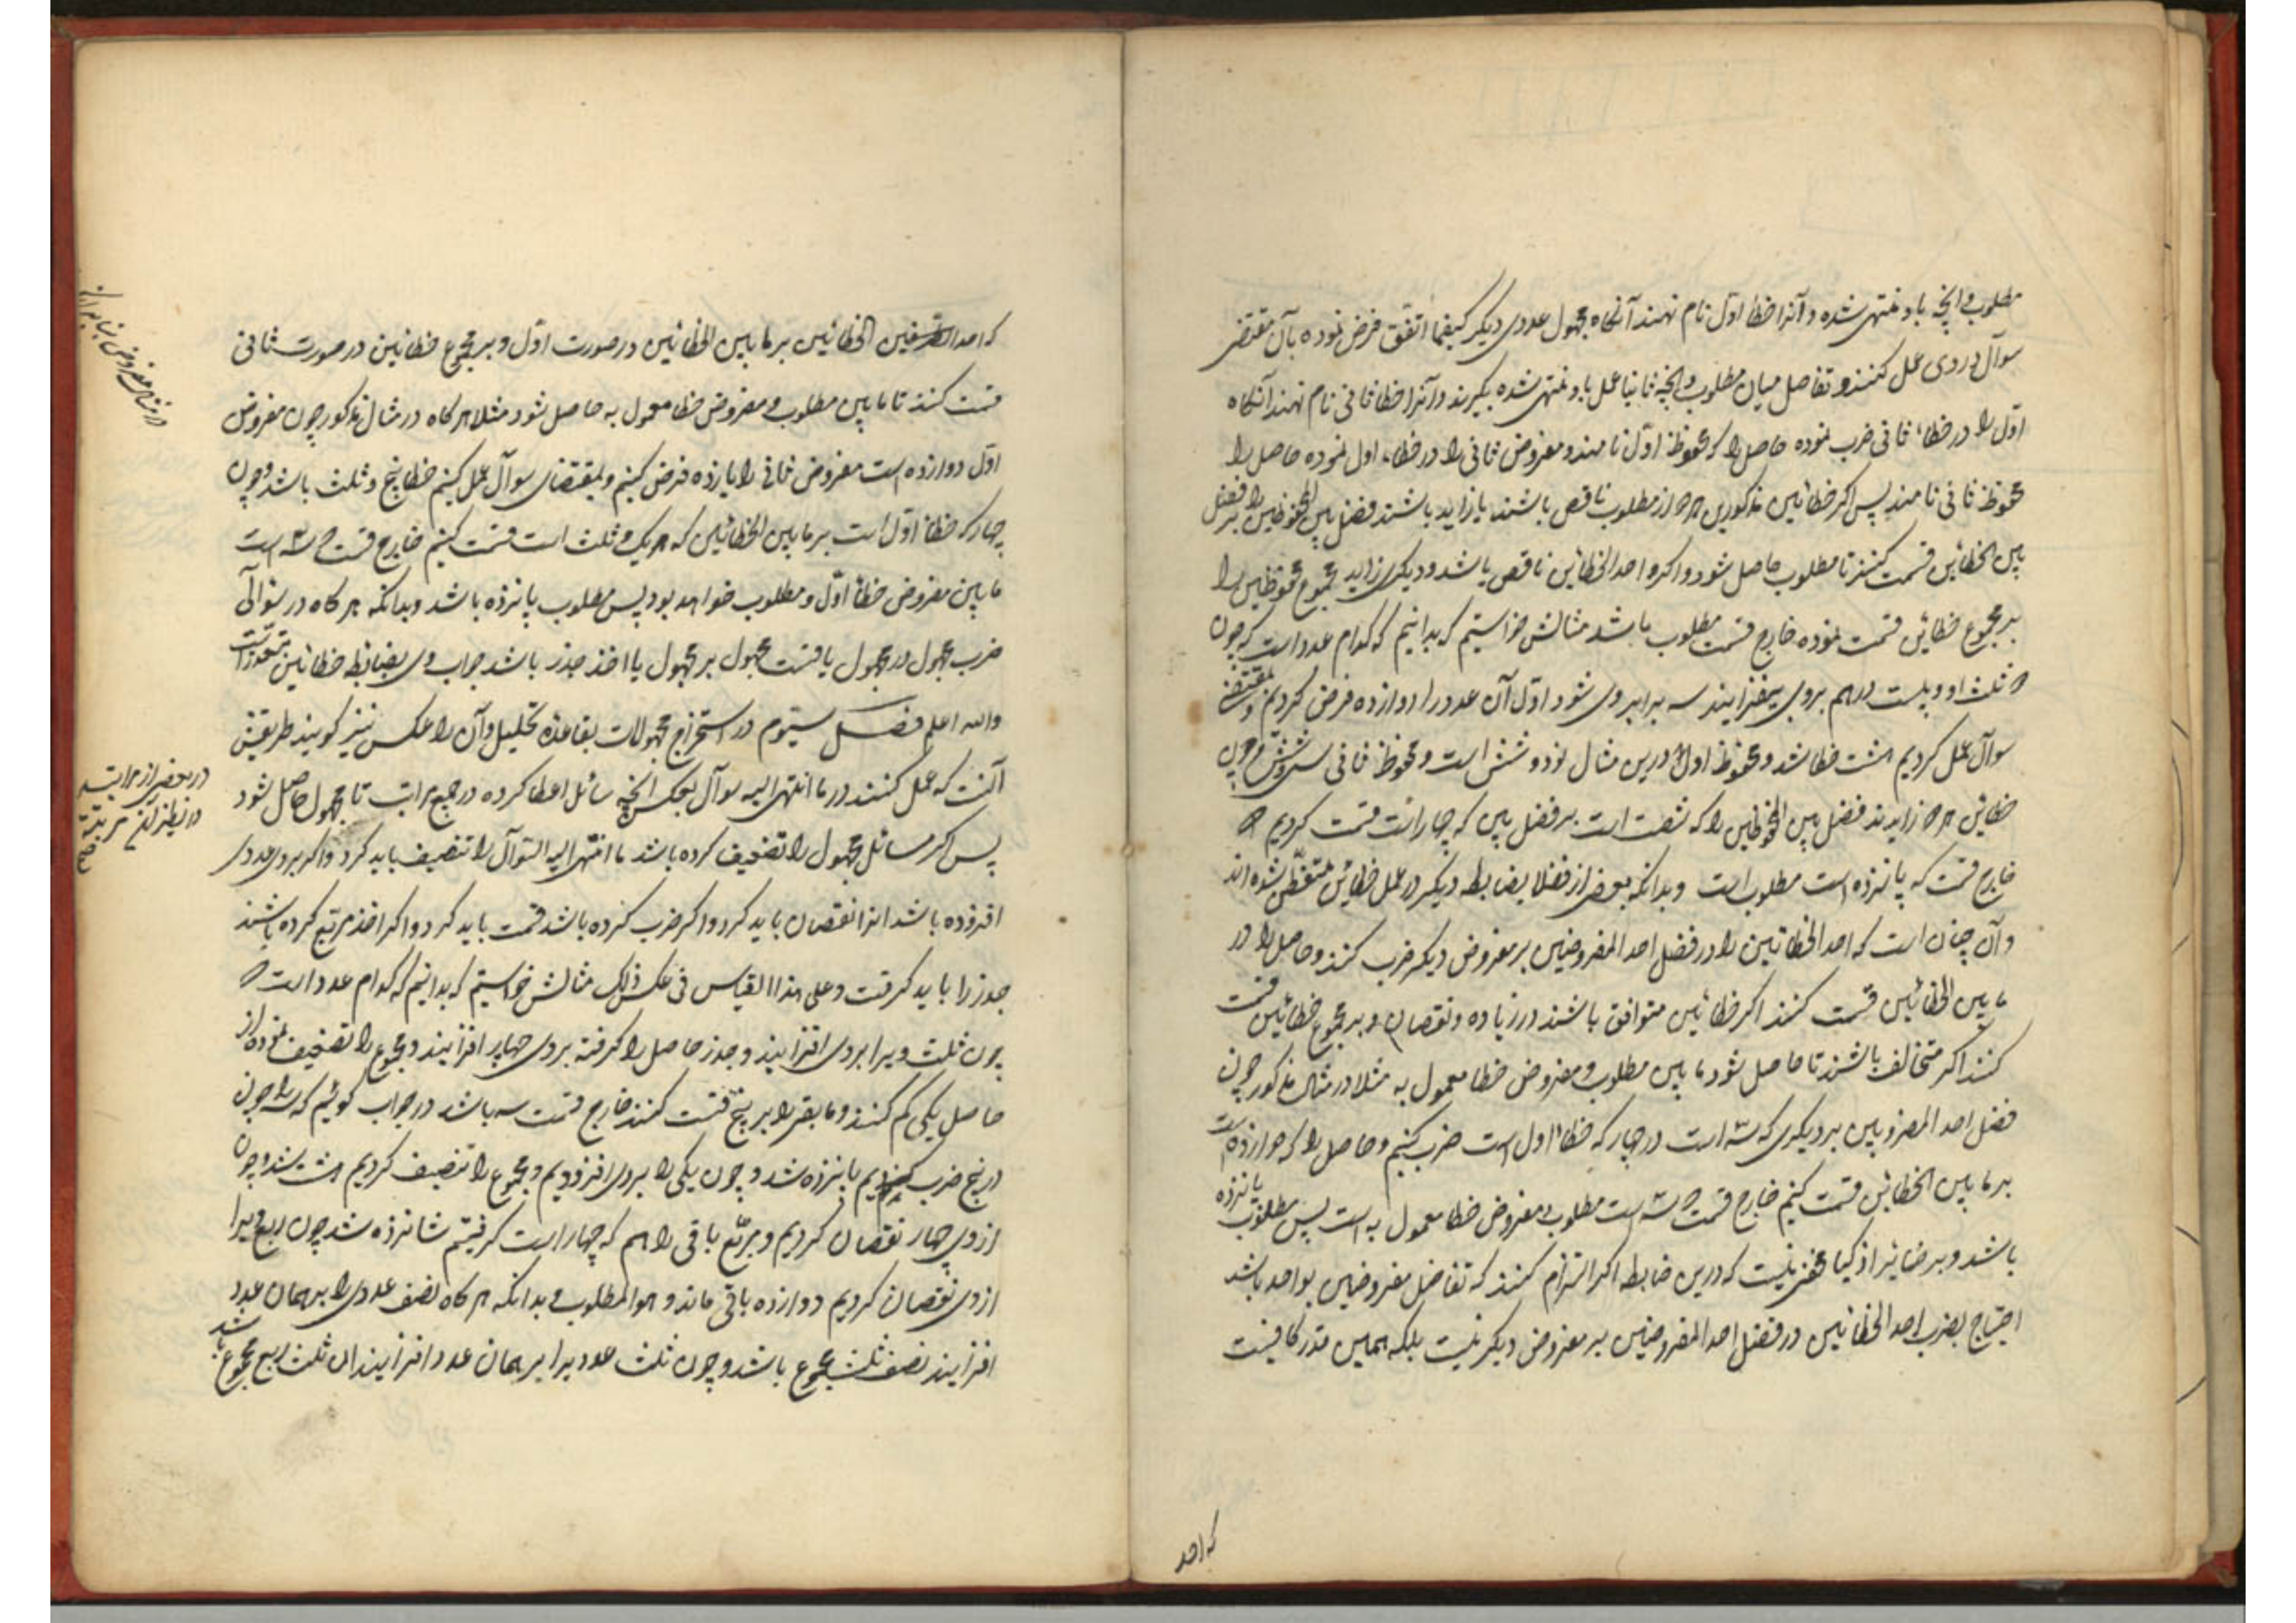 مطلوب و انچه باو منتهی شده و آنرا خطا اول نام نهند آنکاه مجهول عددی دیکر کیفما اتفق فرض نموده بآن مقتضی
سوآل در وی عمل کنند و تفاضل میان مطلوب و انچه ثانیا عمل باو منتهی شده بکیرند و آنرا خطا ثانی نام نهند آنکاه
اول را در خطاء ثانی ضرب نموده حاصل را که محفوظ اول نامند و مفروض ثانی را در خطاء اول نموده حاصل را
محفوظ ثانی نامند پس اکر خطائین مذکورین هر دو از مطلوب ناقص باشند یا زاید باشند فضل بین المحفوظین را بر فضل
بین الخطائین قسمت کنند تا مطلوب حاصل شود و اکر احد الخطائین ناقص باشد و دیکری زاید مجموع محفوظین را
بر مجموع خطائین قسمت نموده خارج قسمت مطلوب باشد مثالش خواستیم که بدانیم که کدام عدد است که چون
دو ثلث او و بیست درهم بروی بیفزایند سه برابر وی شود اول آن عدد را دوازده فرض کردیم و بمقتضی
سوآل عمل کردیم هشت خطا شد و محفوظ اول درین مثال نود و شش است و محفوظ ثانی سی و شش و چون
خطائین هر دو زایدند فضل بین المحفوظین را که شصت است بر فضل بین که چهار است قسمت کردیم
خارج قسمت که پانزده است مطلوب است و بدانکه بعضی از فضلا بضابطه دیکر در عمل خطائین متفطن شده اند
و آن چنان است که احد الخطائین را در فضل احد المفروضین بر مفروض دیکر ضرب کنند و حاصل را در
ما بین الخطائین قسمت کنند اکر خطائین متوافق باشند در زیاده و نقصان و بر مجموع خطائین قسمت
کنند اکر متخالف باشند تا حاصل شود ما بین مطلوب و مفروض خطا معمول به مثلا در مثال مذکور چون
فضل احد المفروضین بر دیکری که سه است در چهار که خطاء اول است ضرب کنیم و حاصل را که دوازده است
بر ما بین الخطائین قسمت کنیم خارج قسمت سه است مطلوب و مفروض خطا معمول به است پس مطلوب پانزده
باشد و بر ضمایر اذکیا مخفی نیست که درین ضابطه اکر التزام کنند که تفاضل مفروضین بواحد باشد
احتیاج بضرب احد الخطائین در فضل احد المفروضین بر مفروض دیکر نیست بلکه همین قدر کافیست
که احد
که احد الخطائین بر ما بین الخطائین در صورت اول و بر مجموع خطائین در صورت ثانی
قسمت کنند تا ما بین مطلوب و مفروض خطا معمول به حاصل شود مثلا هر کاه در مثال مذکور چون مفروض
اول دوازده است مفروض ثانی را یازده فرض کنیم و بمقتضای سوآل عمل کنیم خطا پنج و ثلث باشد و چون
چهار که خطا اول است بر ما بین الخطائین که یک و ثلث است قسمت کنیم خارج قسمت سه است
ما بین مفروض خطا اول و مطلوب خواهد بود پس مطلوب پانزده باشد و بدانکه هر کاه در سوالی
ضرب مجهول در مجهول یا قسمت مجهول بر مجهول یا اخذ جذر باشد جواب وی بضابطه خطائین متعذر است
والله اعلم فصل سیوم در استخراج مجهولات بقاعده تحلیل و آن را عکس نیز کویند طریقش
آنست که عمل کنند در ما انتهی الیه سوآل بعکس انچه سائل اعطا کرده در جمیع مراتب تا مجهول حاصل شود
پس اکر سائل مجهول را تضعیف کرده باشد ما انتهی الیه السوآل را تنصیف باید کرد و اکر بروی عددی
افزوده باشد انرا نقصان باید کرد و اکر ضرب کرده باشد قسمت باید کرد و اکر اخذ مربع کرده باشند
جذر را باید کرفت و علی هذا القیاس فی عکس ذلک مثالش خواستیم که بدانیم که کدام عدد است که
چون ثلث ویرا بروی افزایند و جذر حاصل را کرفته بروی چهار افزایند و مجموع را تضعیف نموده از
حاصل یکی کم کنند و ما بقی را بر پنج قسمت کنند خارج قسمت سه باشد در جواب کوئیم که سه را چون
در پنج ضرب کردیم پانزده شد و چون یکی را بروی افزودیم و مجموع را تنصیف کردیم هشت شد و چون
ازوی چهار نقصان کردیم و مربع باقی را هم که چهار است کرفتیم شانزده شد چون ربع ویرا
ازوی نقصان کردیم دوازده باقی ماند و هو المطلوب و بدانکه هر کاه نصف عددی را بر همان عدد
افزایند نصف ثلث مجموع باشد و چون ثلث عدد یرا بر همان عدد افزایند ان ثلث ربع مجموع باشد
در بعضی از مراتب
در نظر آن مرتبه